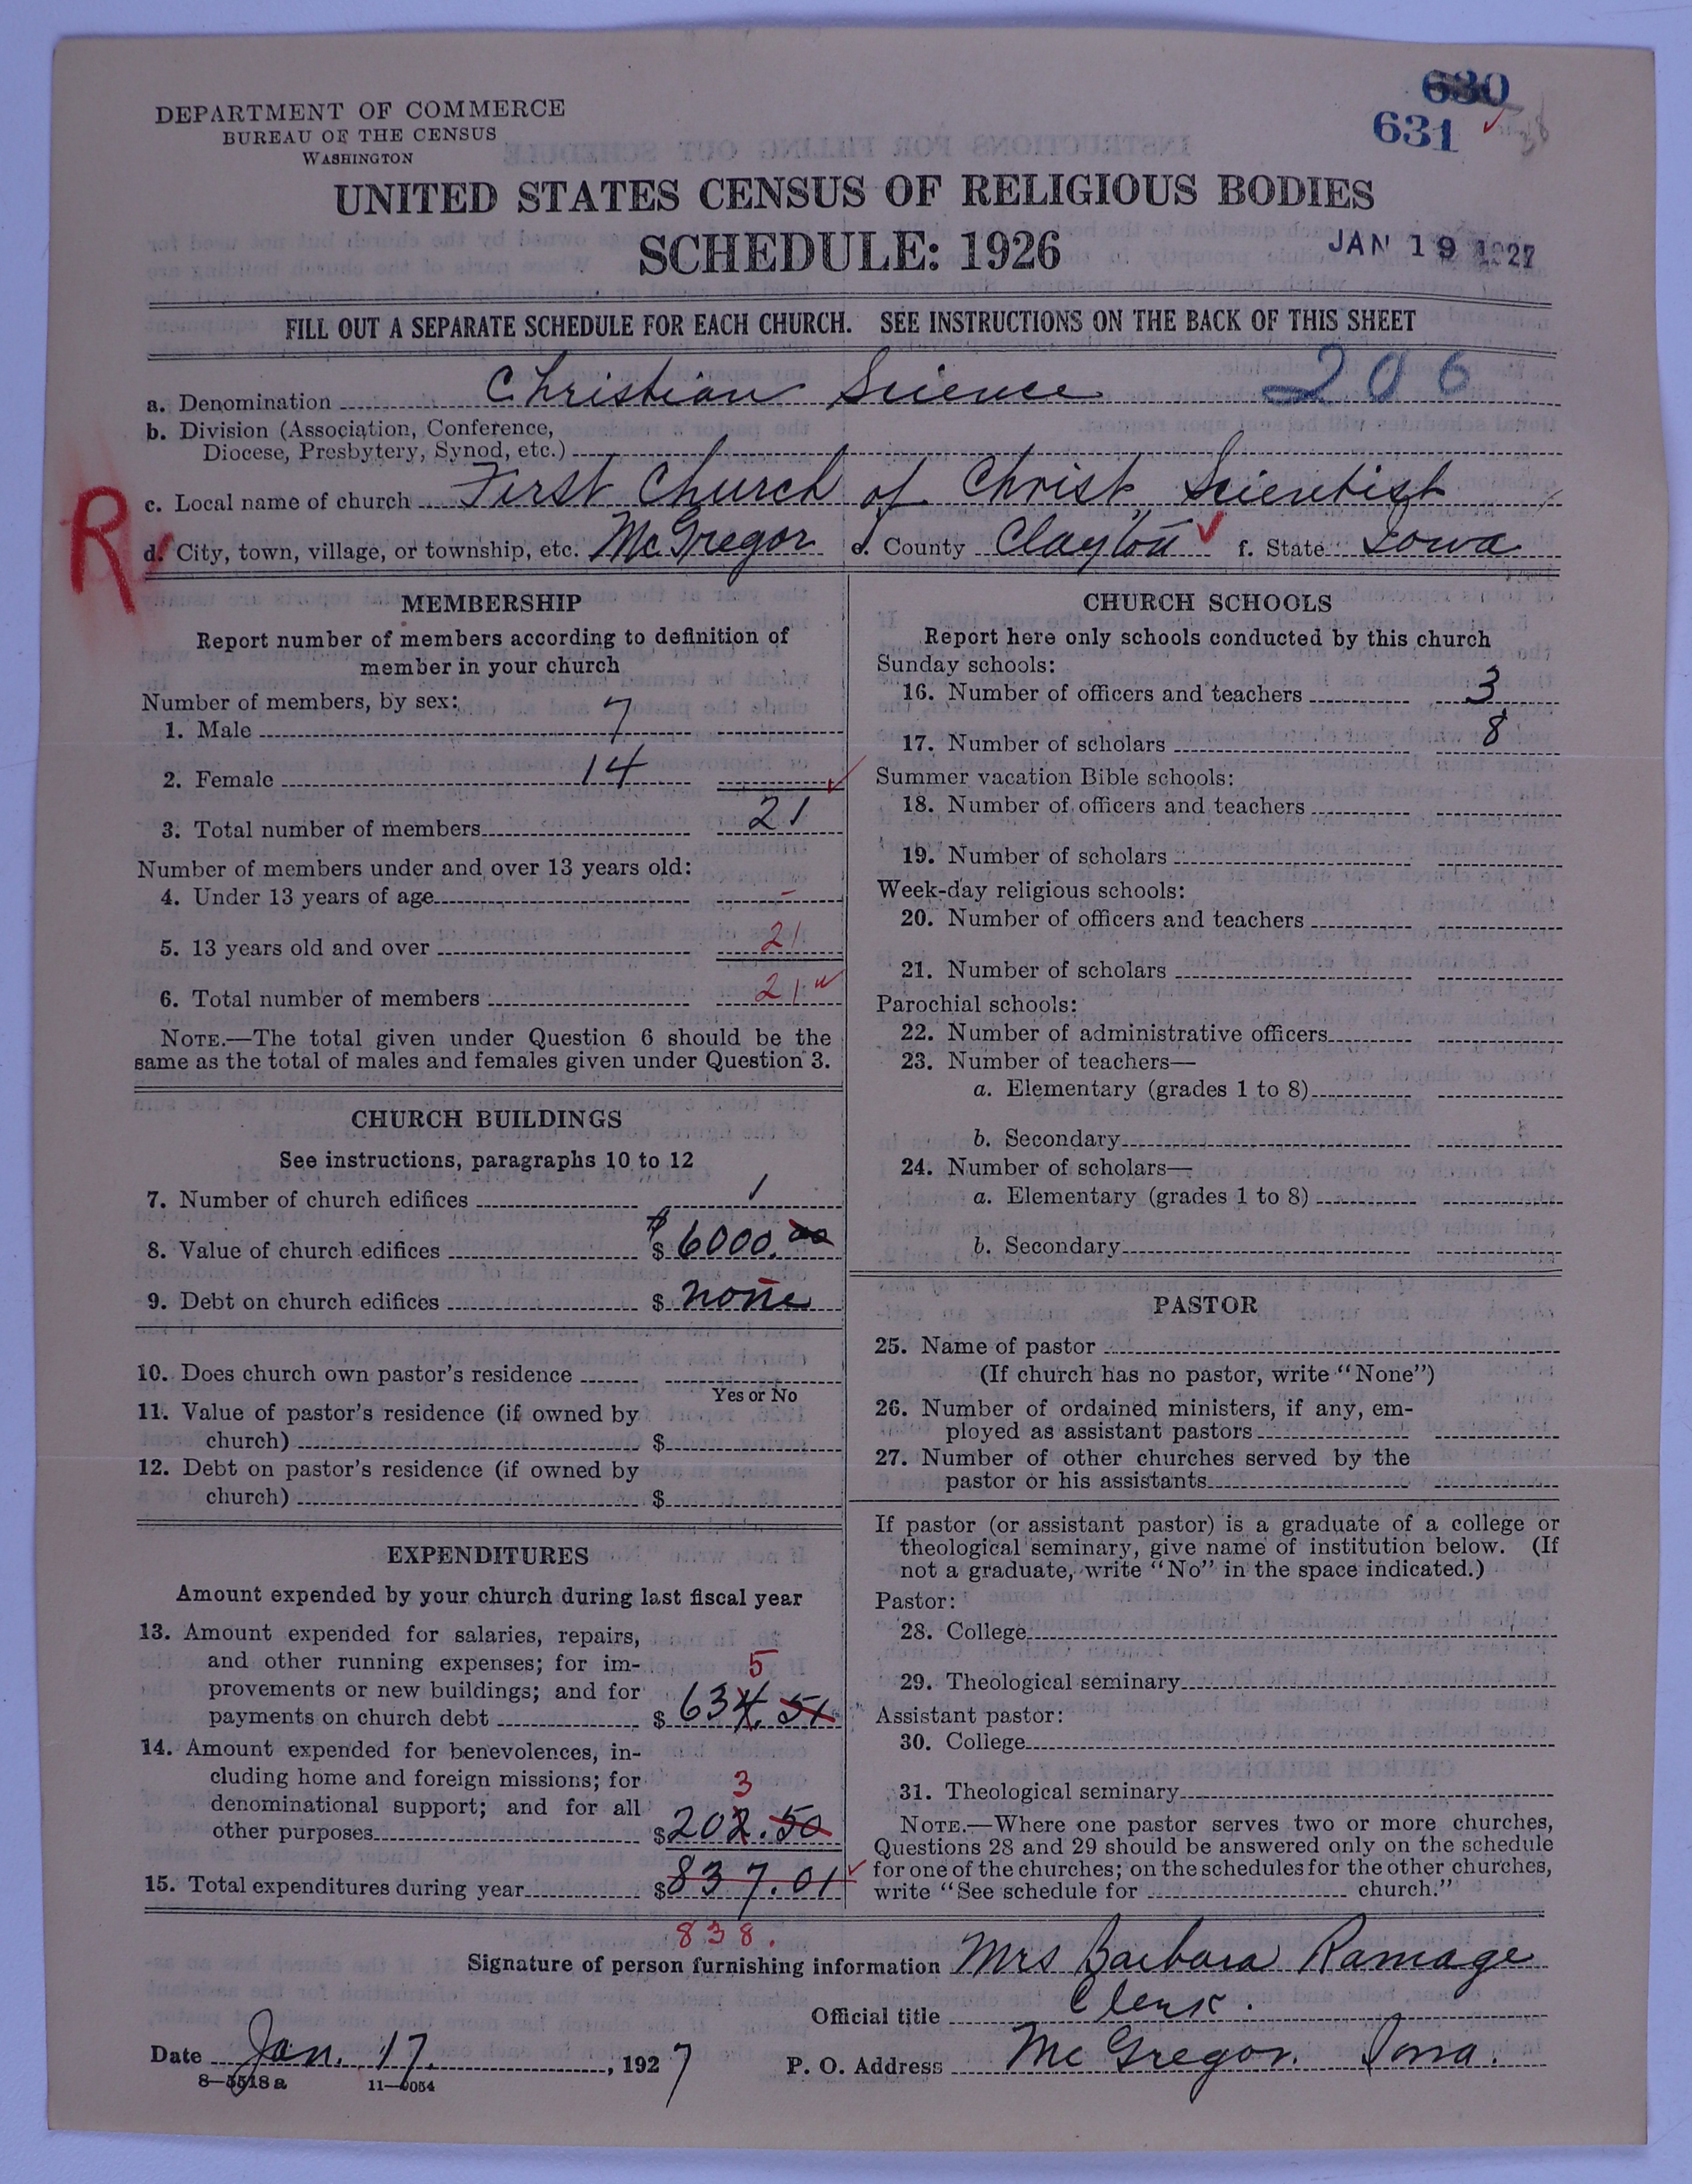 DEPARTMENT OF COMMERCE
BUREAU OF THE CENSUS
WASHINGTON
630
631
UNITED STATES CENSUS OF RELIGIOUS BODIES
SCHEDULE: 1926
JAN 19 1927
FILL OUT A SEPARATE SCHEDULE FOR EACH CHURCH. SEE INSTRUCTIONS ON THE BACK OF THIS SHEET
a. Denomination Christian Science 206
b. Division (Association, Conference,
Diocese, Presbytery, Synod, etc.)
R
c. Local name of church First Church of Christ, Scientist
d. City, town, village, or township, etc. McGregor e. County Clayton f. State Iowa
MEMBERSHIP
Report number of members according to definition of
member in your church
Number of members, by sex:
1. Male 7
2. Female 14
3. Total number of members 21
Number of members under and over 13 years old:
4. Under 13 years of age –
5. 13 years old and over 21
6. Total number of members 21
NOTE.—The total given under Question 6 should be the
same as the total of males and females given under Question 3.
CHURCH BUILDINGS
See instructions, paragraphs 10 to 12
7. Number of church edifices 1
8. Value of church edifices $ $6000.00
9. Debt on church edifices $ none
10. Does church own pastor's residence
Yes or No
11. Value of pastor's residence (if owned by
church) $
12. Debt on pastor's residence (if owned by
church) $
EXPENDITURES
Amount expended by your church during last fiscal year
13. Amount expended for salaries, repairs,
and other running expenses; for im-
5
provements or new buildings; and for
payments on church debt $ 634.51
14. Amount expended for benevolences, in-
cluding home and foreign missions; for
3
denominational support; and for all
other purposes $ 202.50
15. Total expenditures during year $ 837.01
838.
CHURCH SCHOOLS
Report here only schools conducted by this church
Sunday schools:
16. Number of officers and teachers 3
17. Number of scholars 8
Summer vacation Bible schools:
18. Number of officers and teachers
19. Number of scholars
Week-day religious schools:
20. Number of officers and teachers
21. Number of scholars
Parochial schools:
22. Number of administrative officers
23. Number of teachers—
a. Elementary (grades 1 to 8)
b. Secondary
24. Number of scholars—
a. Elementary (grades 1 to 8)
b. Secondary
PASTOR
25. Name of pastor
(If church has no pastor, write "None")
26. Number of ordained ministers, if any, em-
ployed as assistant pastors
27. Number of other churches served by the
pastor or his assistants
If pastor (or assistant pastor) is a graduate of a college or
theological seminary, give name of institution below. (If
not a graduate, write "No" in the space indicated.)
Pastor:
28. College
29. Theological seminary
Assistant pastor:
30. College
31. Theological seminary
NOTE.—Where one pastor serves two or more churches,
Questions 28 and 29 should be answered only on the schedule
for one of the churches; on the schedules for the other churches,
write "See schedule for church."
Signature of person furnishing information Mrs Barbara Ramage
Official title Clerk.
Date Jan. 17, 1927 P. O. Address McGregor. Iowa.
8—5518a 11—9054